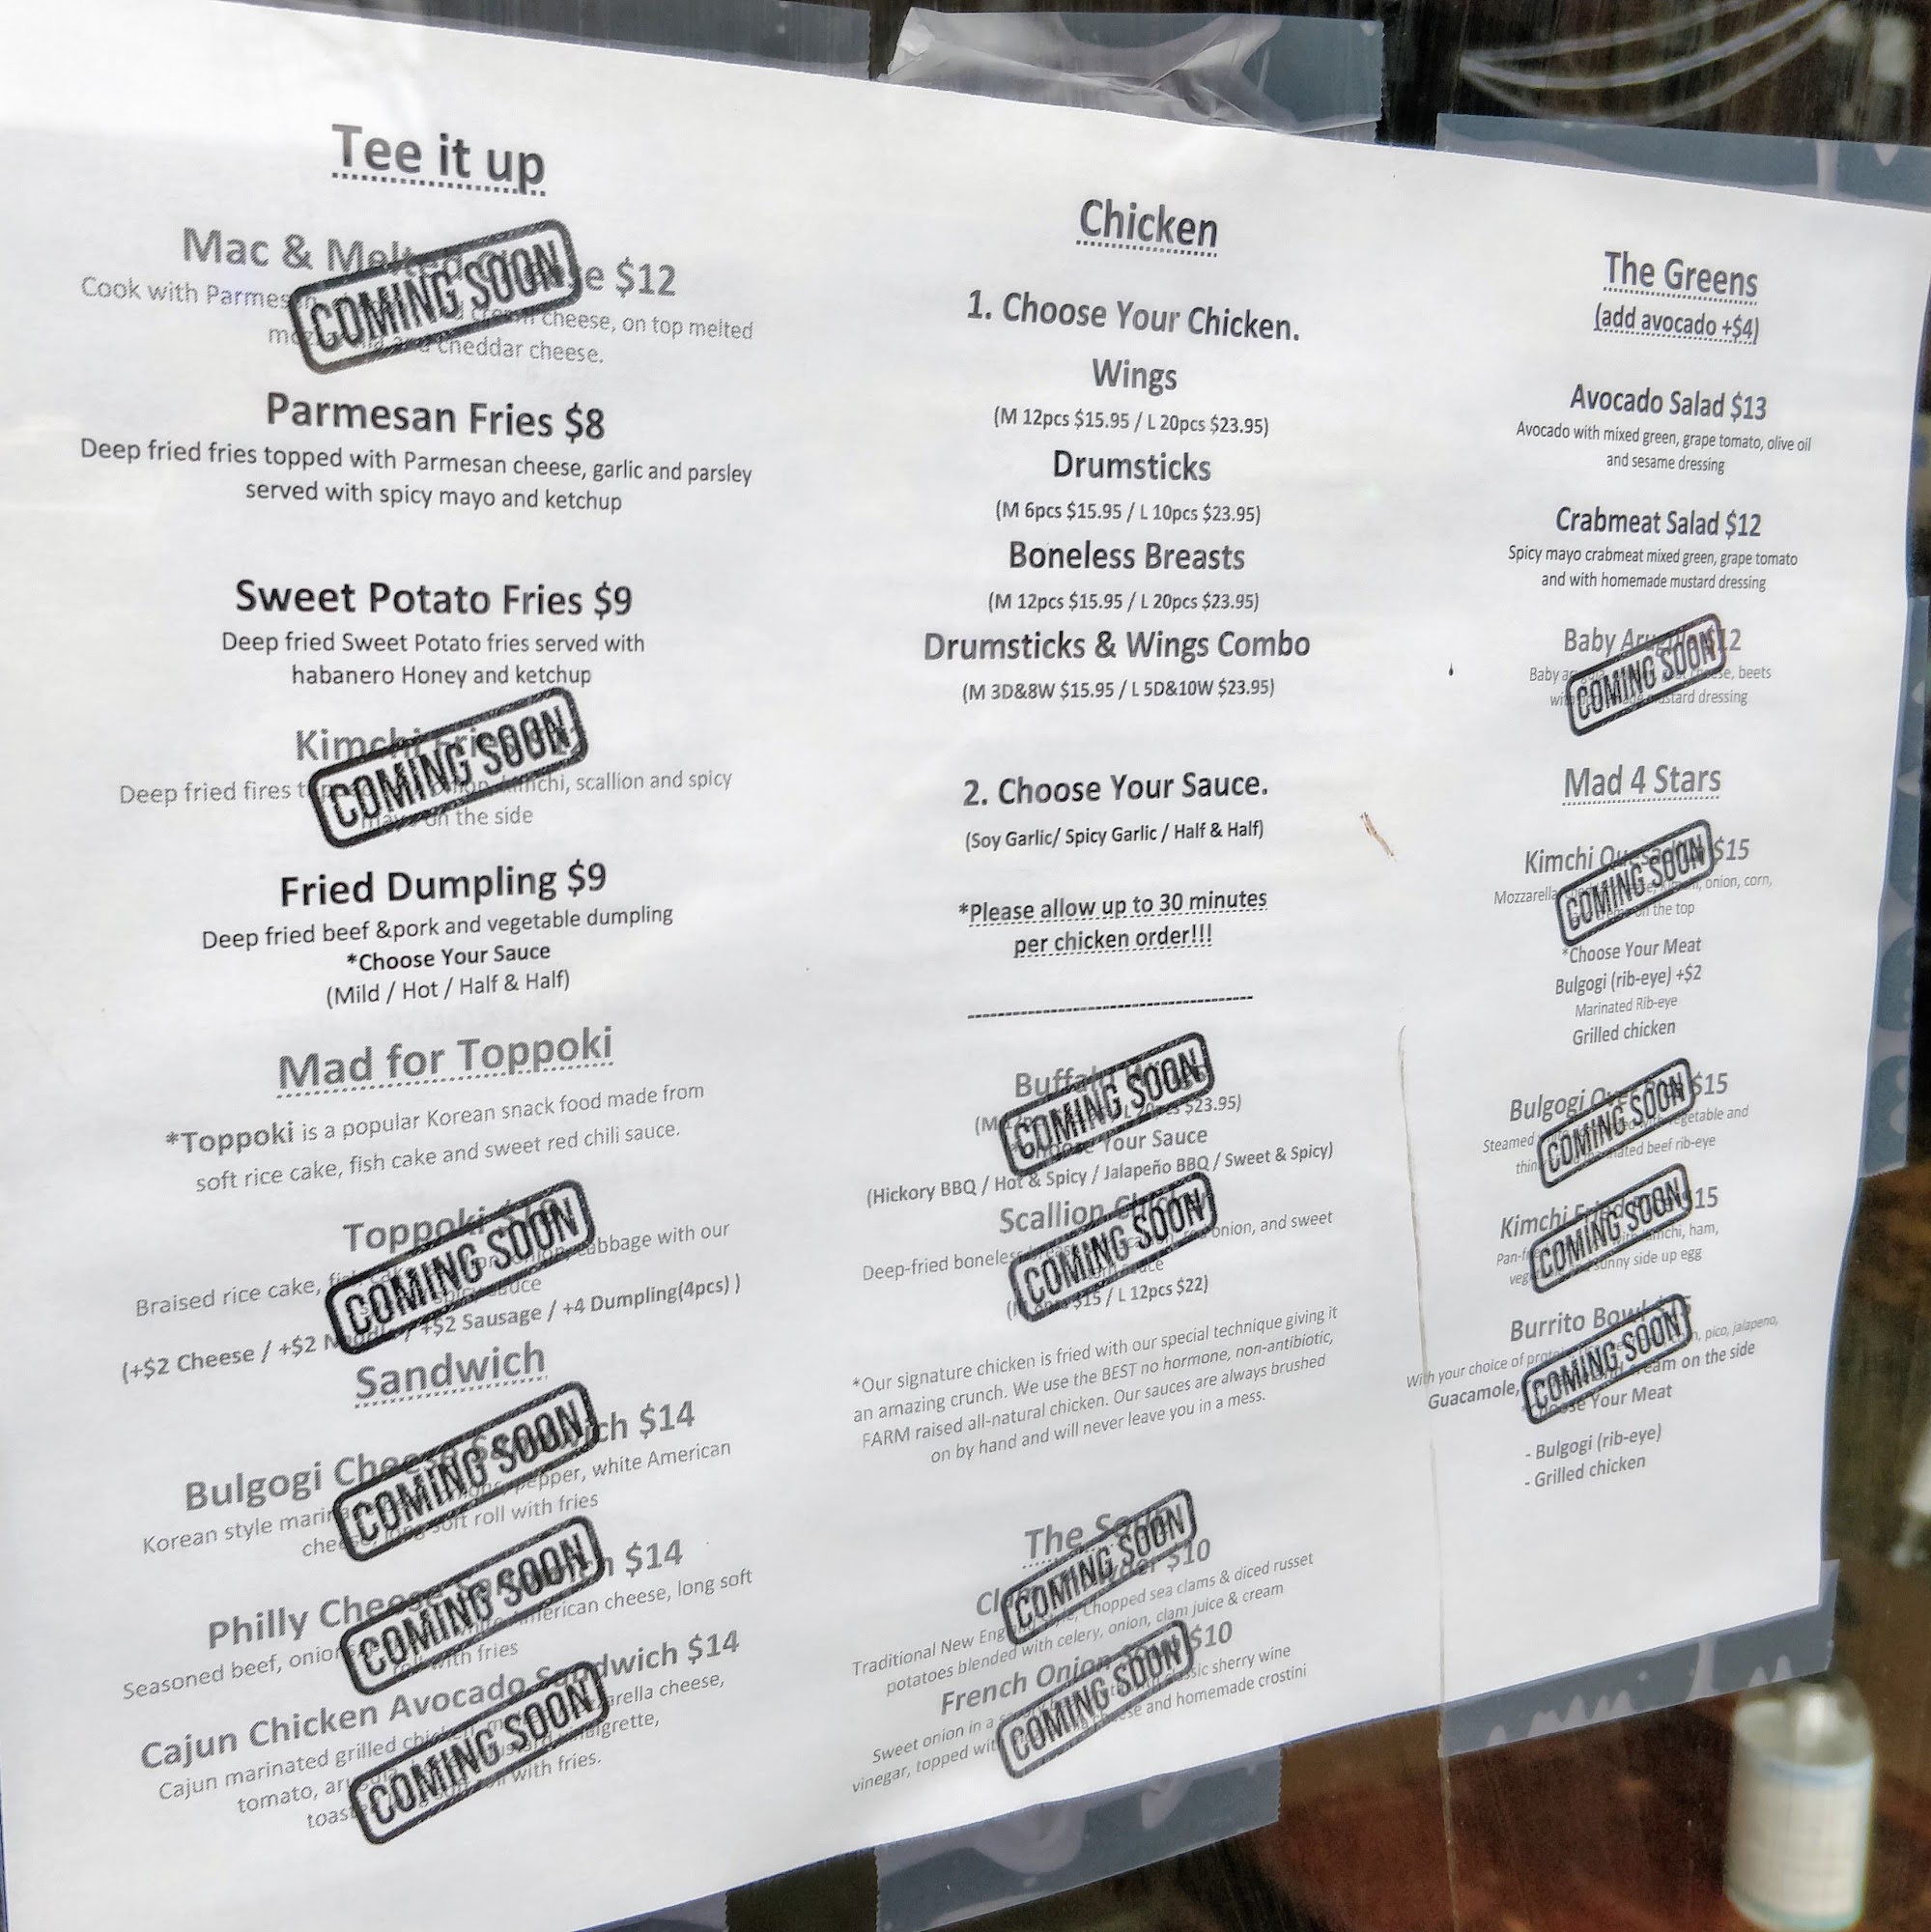 Tee it up
Mac & Melted Cheese $12
COMING SOON
Cook with Parmesan, cream cheese, on top melted
mozzarella and cheddar cheese.
Parmesan Fries $8
Deep fried fries topped with Parmesan cheese, garlic and parsley
served with spicy mayo and ketchup
Sweet Potato Fries $9
Deep fried Sweet Potato fries served with
habanero Honey and ketchup
Kimchi Fries
COMING SOON
Deep fried fires kimchi, scallion and spicy
mayo on the side
Fried Dumpling $9
Deep fried beef &pork and vegetable dumpling
*Choose Your Sauce
(Mild / Hot / Half & Half)
Mad for Toppoki
*Toppoki is a popular Korean snack food made from
soft rice cake, fish cake and sweet red chili sauce.
Toppoki
COMING SOON
Braised rice cake, fish cake, onion, cabbage with our
spicy sauce
(+$2 Cheese / +$2 Noodle / +$2 Sausage / +4 Dumpling(4pcs) )
Sandwich
Bulgogi Cheese Sandwich $14
COMING SOON
Korean style pepper, white American
cheese, long soft roll with fries
Philly Cheese Sandwich $14
COMING SOON
Seasoned beef, onion, white American cheese, long soft
roll with fries
Cajun Chicken Avocado Sandwich $14
COMING SOON
Cajun marinated grilled chicken, mozzarella cheese,
tomato, arugula, mustard vinaigrette,
with fries.
Chicken
1. Choose Your Chicken.
Wings
(M 12pcs $15.95 / L 20pcs $23.95)
Drumsticks
(M 6pcs $15.95 / L 10pcs $23.95)
Boneless Breasts
(M 12pcs $15.95 / L 20pcs $23.95)
Drumsticks & Wings Combo
(M 3D&8W $15.95 / L 5D&10W $23.95)
2. Choose Your Sauce.
(Soy Garlic/ Spicy Garlic / Half & Half)
*Please allow up to 30 minutes
per chicken order!!!
--------------------------------------------
Buffalo
COMING SOON
(M L 20pcs $23.95)
*Choose Your Sauce
(Hickory BBQ / Hot & Spicy / Jalapeño BBQ / Sweet & Spicy)
Scallion Chicken
COMING SOON
Deep-fried boneless onion, and sweet
$15 / L 12pcs $22)
*Our signature chicken is fried with our special technique giving it
an amazing crunch. We use the BEST no hormone, non-antibiotic,
FARM raised all-natural chicken. Our sauces are always brushed
on by hand and will never leave you in a mess.
The
COMING SOON
Clam Chowder $10
Traditional New England Style, Chopped sea clams & diced russet
potatoes blended with celery, onion, clam juice & cream
French Onion Soup $10
COMING SOON
Sweet onion in a classic sherry wine
vinegar, topped with cheese and homemade crostini
The Greens
(add avocado +$4)
Avocado Salad $13
Avocado with mixed green, grape tomato, olive oil
and sesame dressing
Crabmeat Salad $12
Spicy mayo crabmeat mixed green, grape tomato
and with homemade mustard dressing
Baby Arugula $12
COMING SOON
Baby arugula, goat cheese, beets
with homemade mustard dressing
Mad 4 Stars
Kimchi Quesadilla $15
COMING SOON
Mozzarella kimchi, onion, corn,
on the top
*Choose Your Meat
Bulgogi (rib-eye) +$2
Marinated Rib-eye
Grilled chicken
Bulgogi Over Rice $15
COMING SOON
Steamed vegetable and
marinated beef rib-eye
Kimchi Fried Rice $15
COMING SOON
kimchi, ham,
sunny side up egg
Burrito Bowl $15
COMING SOON
With your choice of protein, corn, pico, jalapeno,
Guacamole, cream on the side
*Choose Your Meat
- Bulgogi (rib-eye)
- Grilled chicken